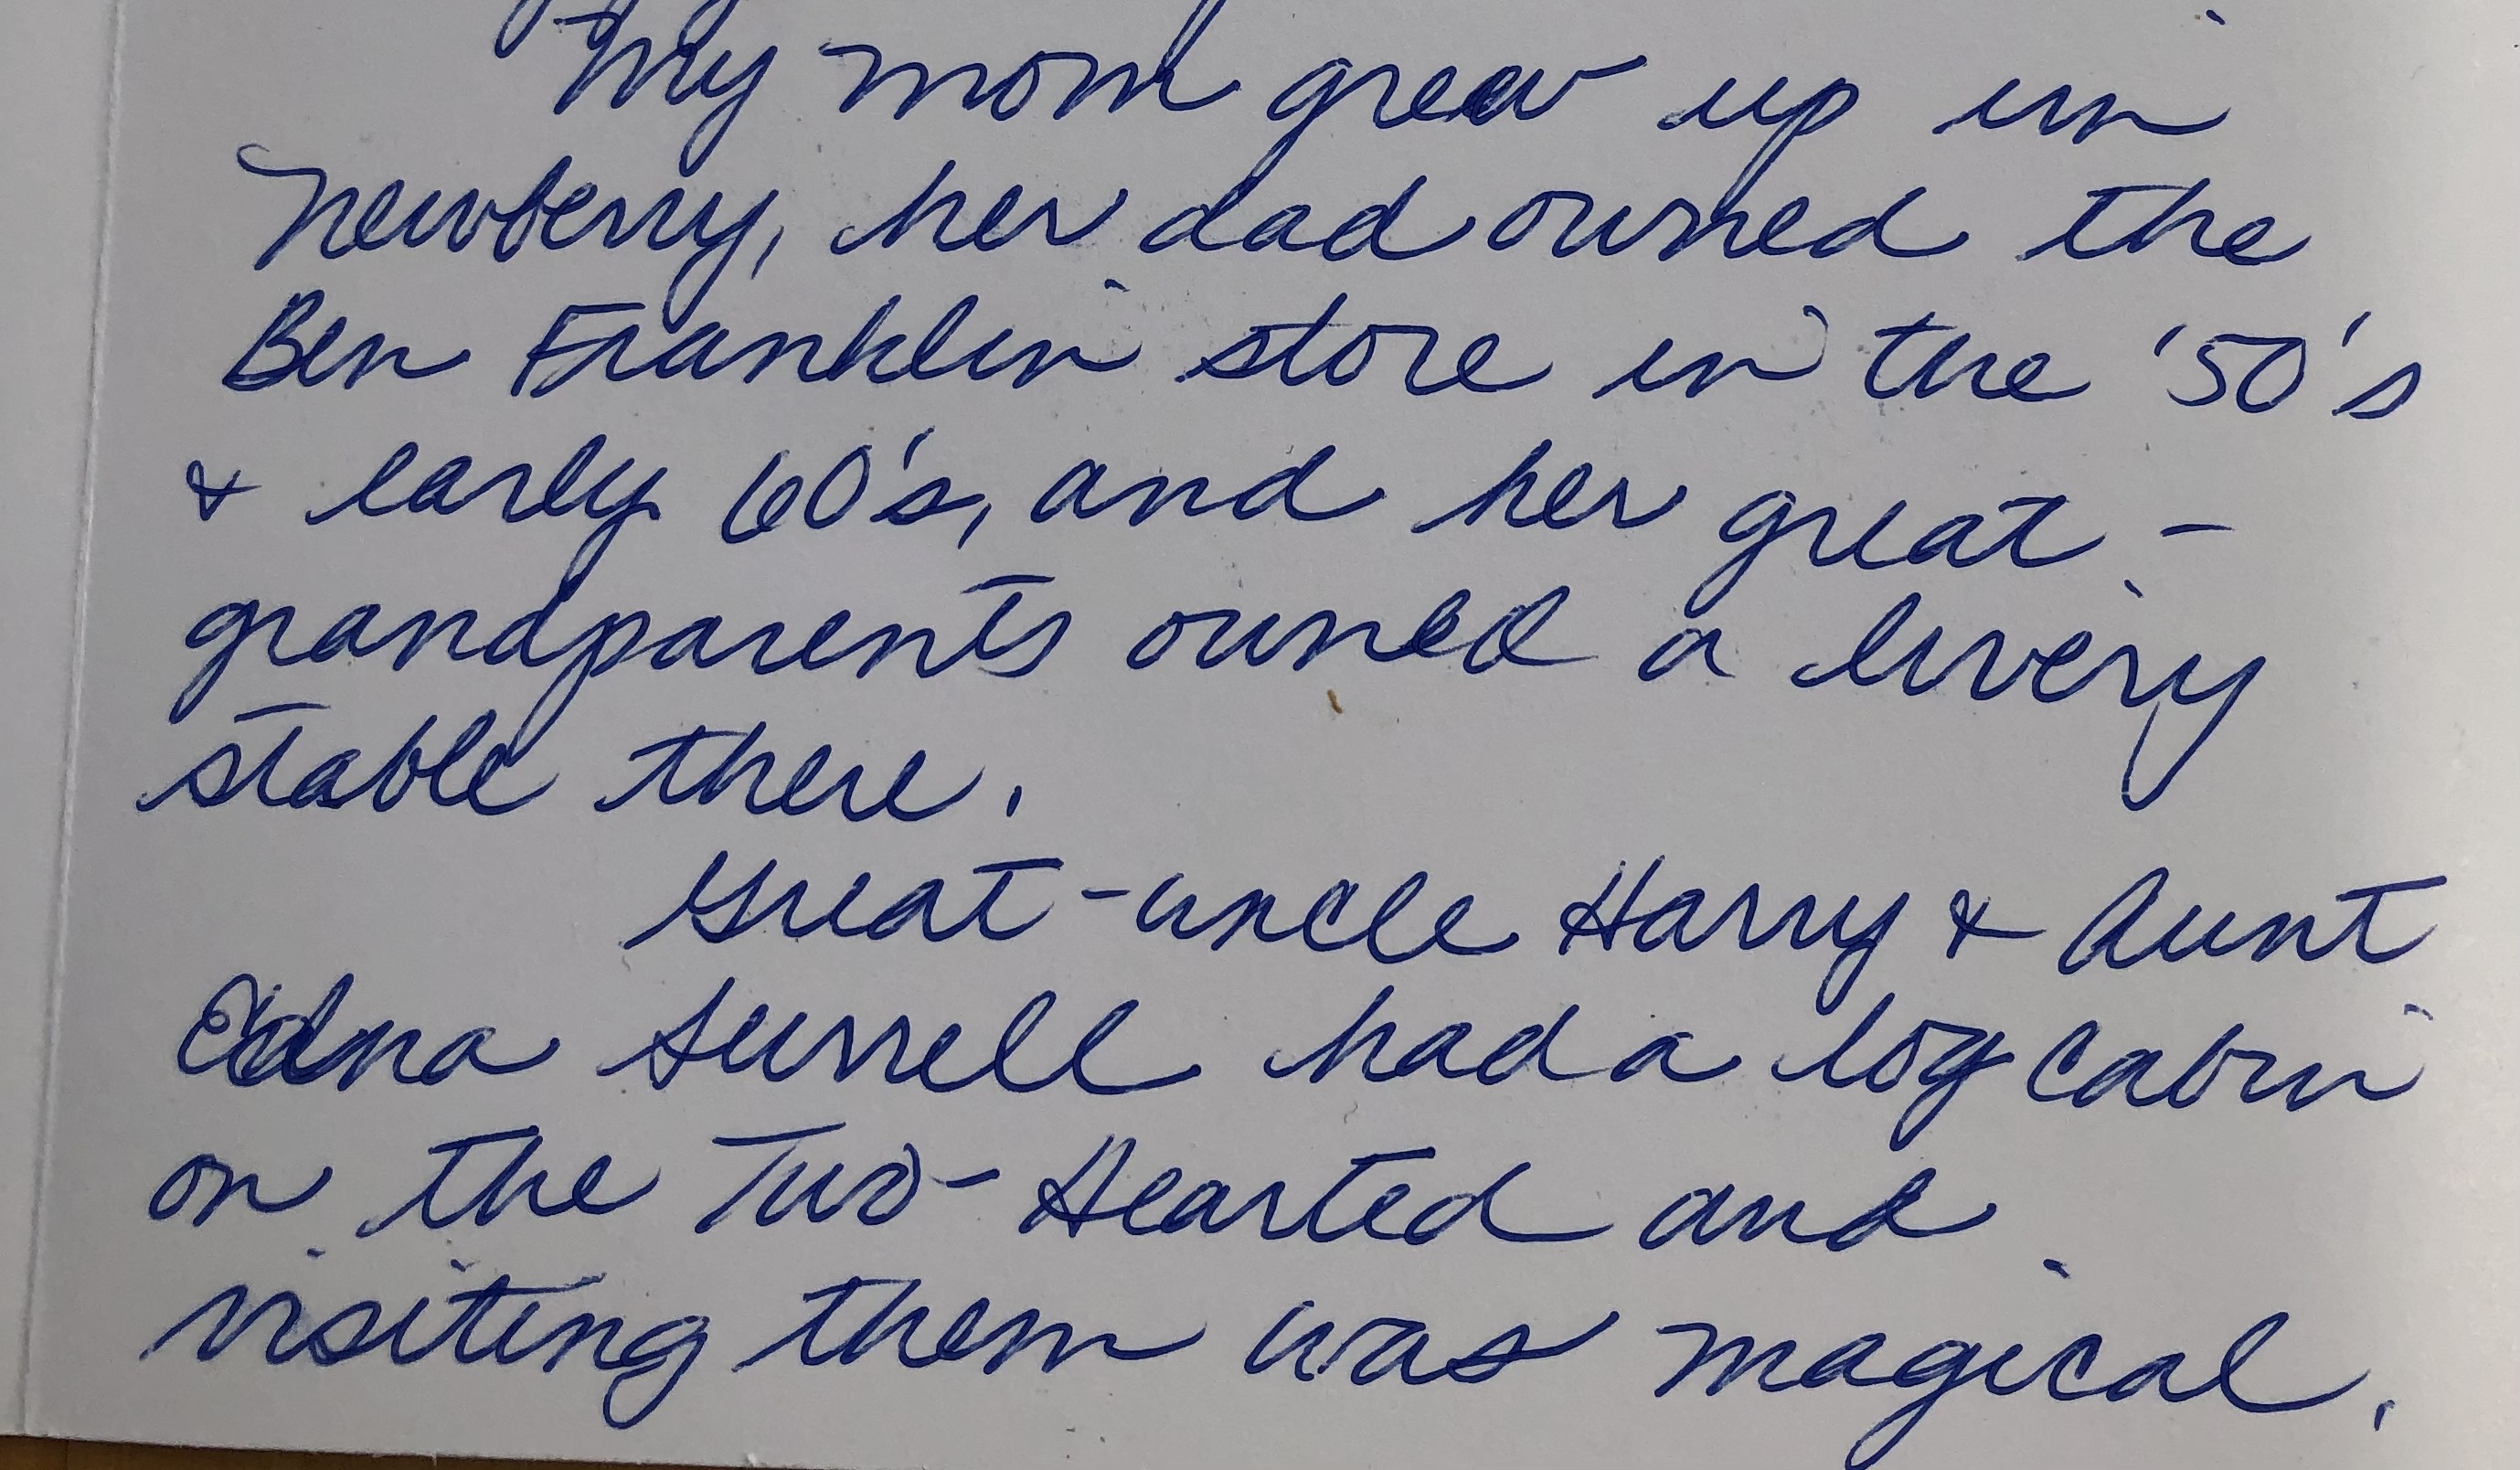 My mom grew up in
Newberry, her dad owned the
Ben Franklin store in the '50's
& early 60's, and her great-
grandparents owned a livery
stable there.
Great-uncle Harry & Aunt
Edna Surrell had a log cabin
on the Two-Hearted and
visiting them was magical.